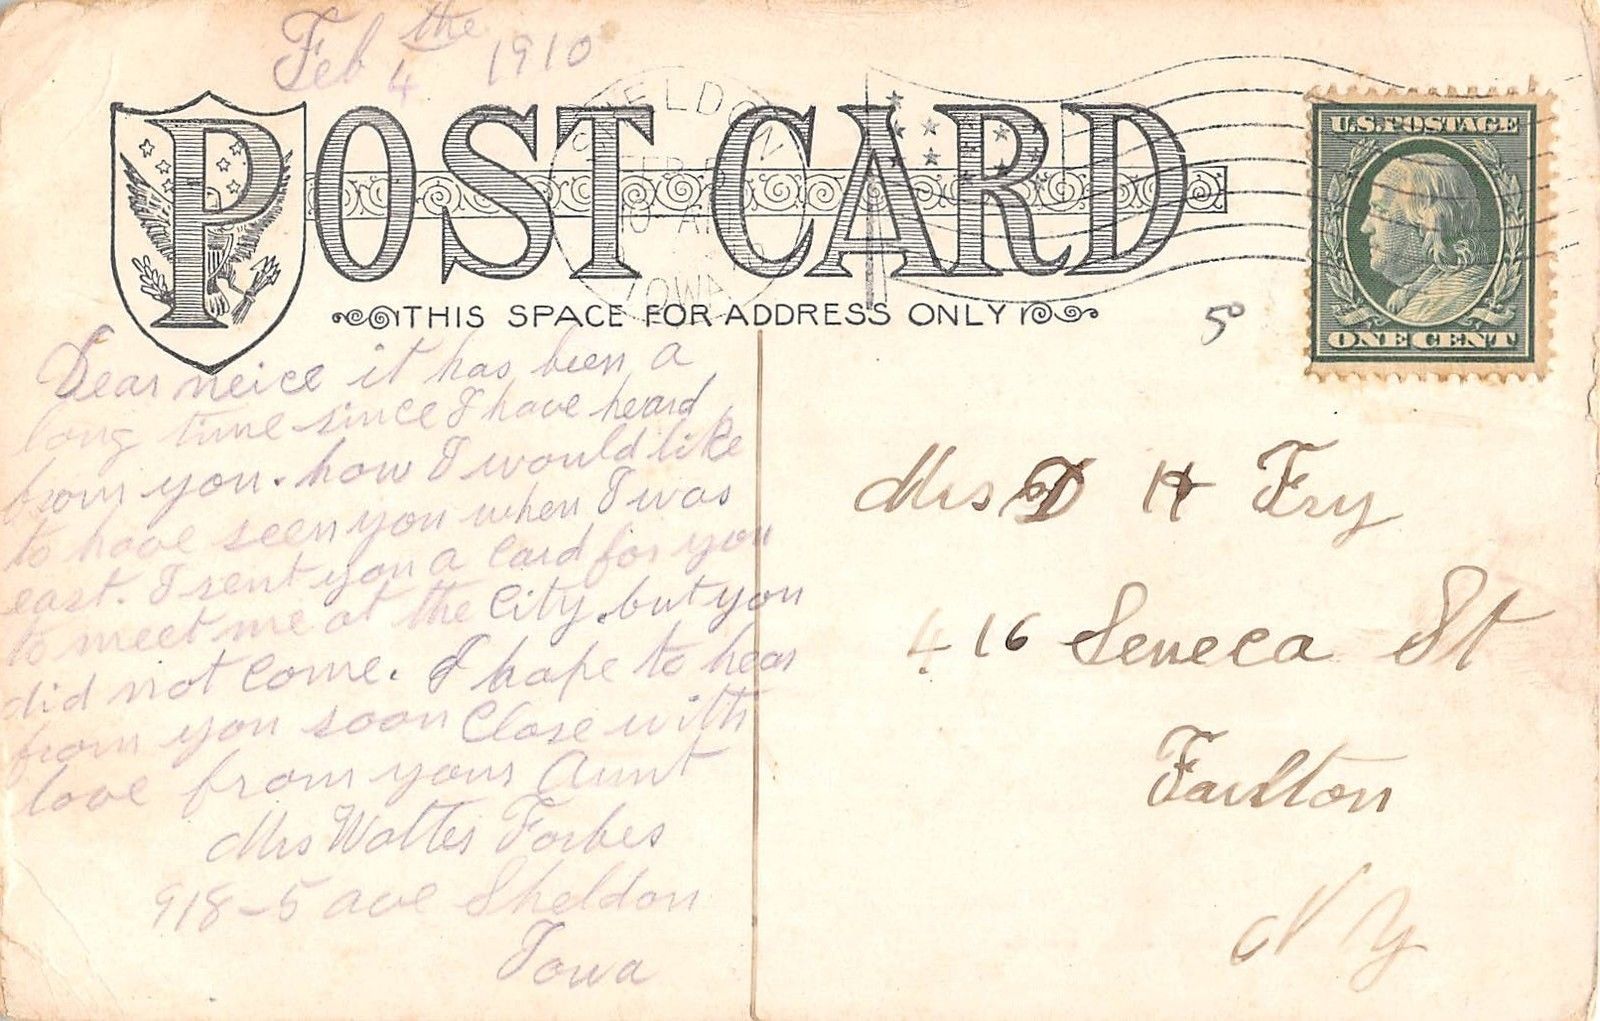 Feb 4 the 1910
POST CARD
SHELDON
FEB 5
10 AM
IOWA
U.S. POSTAGE
ONE CENT
THIS SPACE FOR ADDRESS ONLY
5º
Dear neice it has been a
long time since I have heard
from you. how I would like
to have seen you when I was
east. I sent you a card for you
to meet me at the City. but you
did not come. I hope to hear
from you soon Close with
love from your Aunt
Mrs Walter Forbes
918-5 ave Sheldon
Iowa
Mrs D H Fry
416 Seneca St
Faulton
N Y